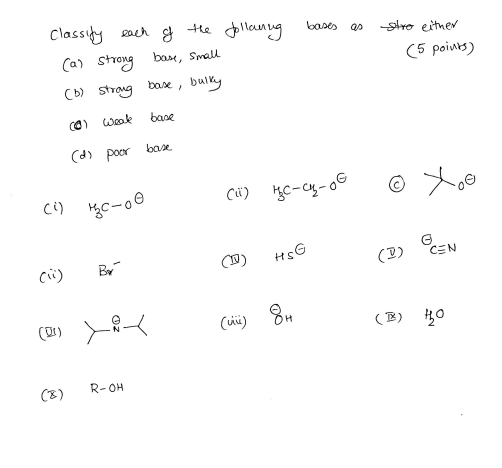 Classify each of the following bases as either
(5 points)
(a) strong base, small
(b) strong base, bulky
(c) weak base
(d) poor base
(i) H3C-O⊖ (ii) H3C-CH2-O⊖ © O⊖
(ii) Br⁻ (IV) HS⊖ (V) ⊖C≡N
(VI) N⊖ (viii) ⊖OH (IX) H2O
(X) R-OH